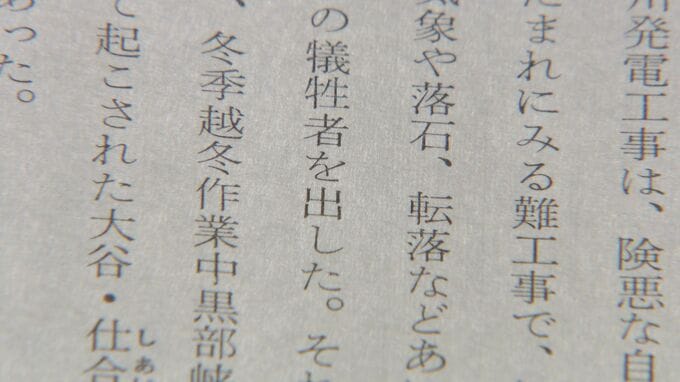 川発電工事は、険悪な自
たまれにみる難工事で、
気象や落石、転落などあ
の犠牲者を出した。それ
、冬季越冬作業中黒部峡
て起こされた大谷・仕合
しあ
あった。